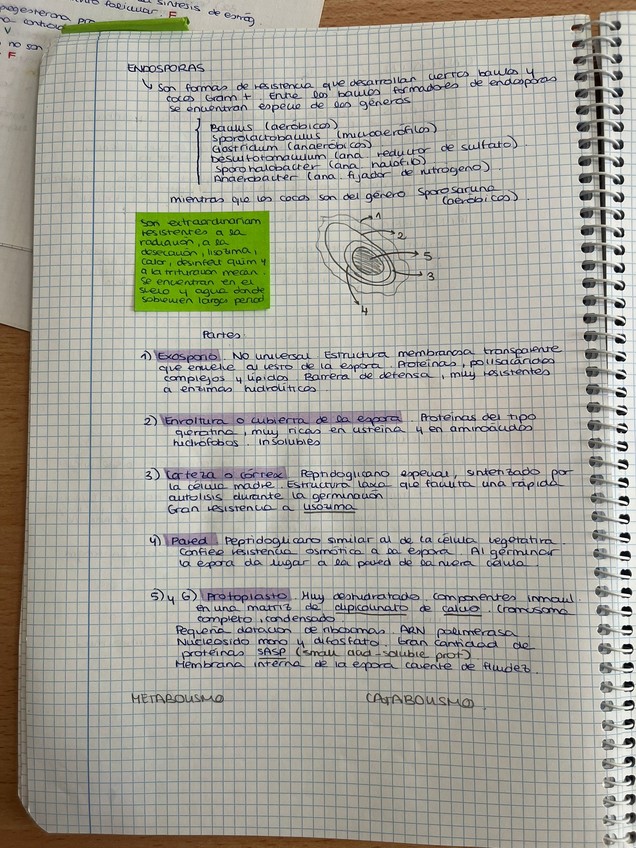 sintesis de estróg
progesterona pro
folicular. F
V
no son
F
ENDOSPORAS
↳ Son formas de resistencia que desarrollan ciertos bacilos y
cocos Gram +. Entre los bacilos formadores de endosporas
se encuentran especie de los géneros
Bacillus (aeróbicos)
Sporolactobacillus (microaerófilos)
Clostridium (anaeróbicos)
Desulfotomaculum (ana reductor de sulfato).
Sporohalobacter (ana halófilo)
Anaerobacter (ana. fijador de nitrogeno).
mientras que los cocos son del género Sporosarcina
(aeróbicos).
Son extraordinariam
resistentes a la
radiación, a la
desecación, lisozima,
calor, desinfect quim y
a la trituración mecán.
Se encuentran en el
suelo y agua donde
sobreviven largos period
1
2
5
3
4
Partes
1) Exosporio. No universal. Estructura membranosa transparente
que envuelve al resto de la espora. Proteínas, polisacáridos
complejos y lípidos. Barrera de defensa, muy resistentes
a enzimas hidrolíticos
2) Envoltura o cubierta de la espora. Proteinas del tipo
queratina, muy ricas en cisteína y en aminoácidos
hidrófobos. Insolubles
3) Corteza o córtex. Peptidoglicano especial, sintetizado por
la célula madre. Estructura laxa que facilita una rápida
autolisis durante la germinación
Gran resistencia a lisozima
4) Pared. Peptidoglicano similar al de la célula vegetativa.
Confiere resistencia osmótica a la espora. Al germinar
la espora da lugar a la pared de la nueva célula
5) y 6) Protoplasto. Muy deshidratado. componentes inmovil.
en una matriz de dipicolinato de calcio. Cromosoma
completo, condensado
Pequeña dotación de ribosomas. ARN polimerasa
Nucleosido mono y difosfato. Gran cantidad de
proteínas SASP (small acid-soluble prot)
Membrana interna de la espora carente de fluidez.
METABOLISMO CATABOLISMO